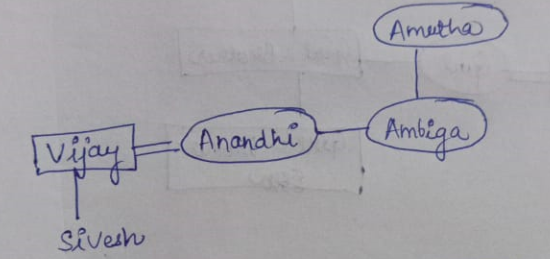 Amutha
Vijay
Anandhi
Ambiga
Sivesh